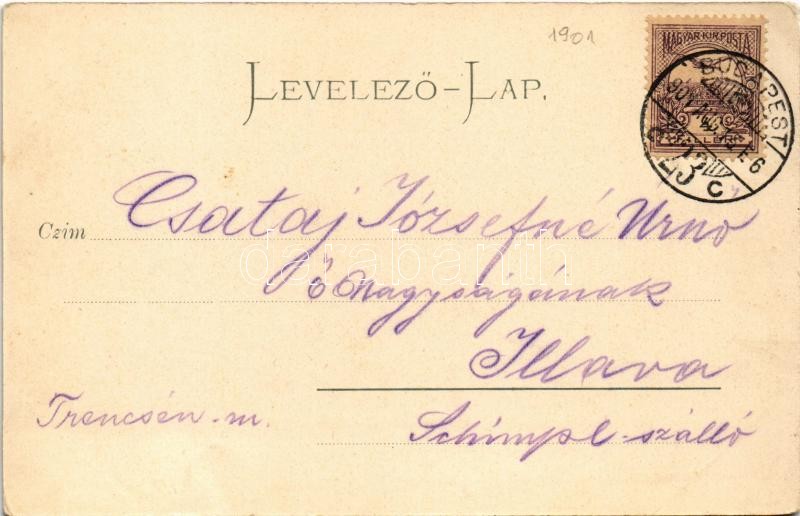 1901
MAGYAR KIR. POSTA
BUDAPEST
LEVELEZŐ-LAP.
Czim Csataj Józsefné Úrnő
ő Nagyságának
Illava
Trencsén. m.
Schimpl-szálló
darabanth